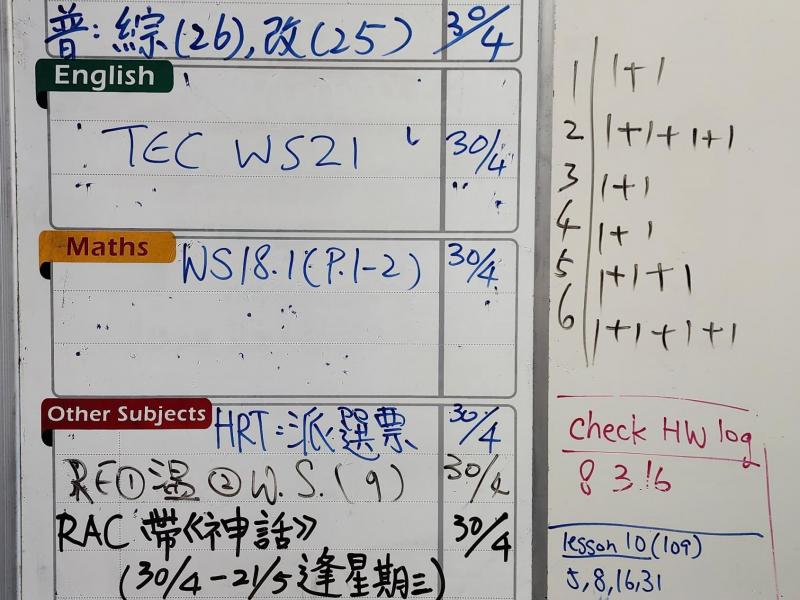 普: 綜(26), 改(25) 30/4
English
TEC WS21 30/4
Maths
WS18.1(P.1-2) 30/4
Other Subjects
HRT: 派選票 30/4
RE①溫②W.S.(9) 30/4
RAC 帶《神話》 30/4
(30/4-21/5逢星期三)
1 1+1
2 1+1+1+1
3 1+1
4 1+1
5 1+1+1
6 1+1+1+1
Check HW log
8 3 16
lesson 10 (109)
5,8,16,31